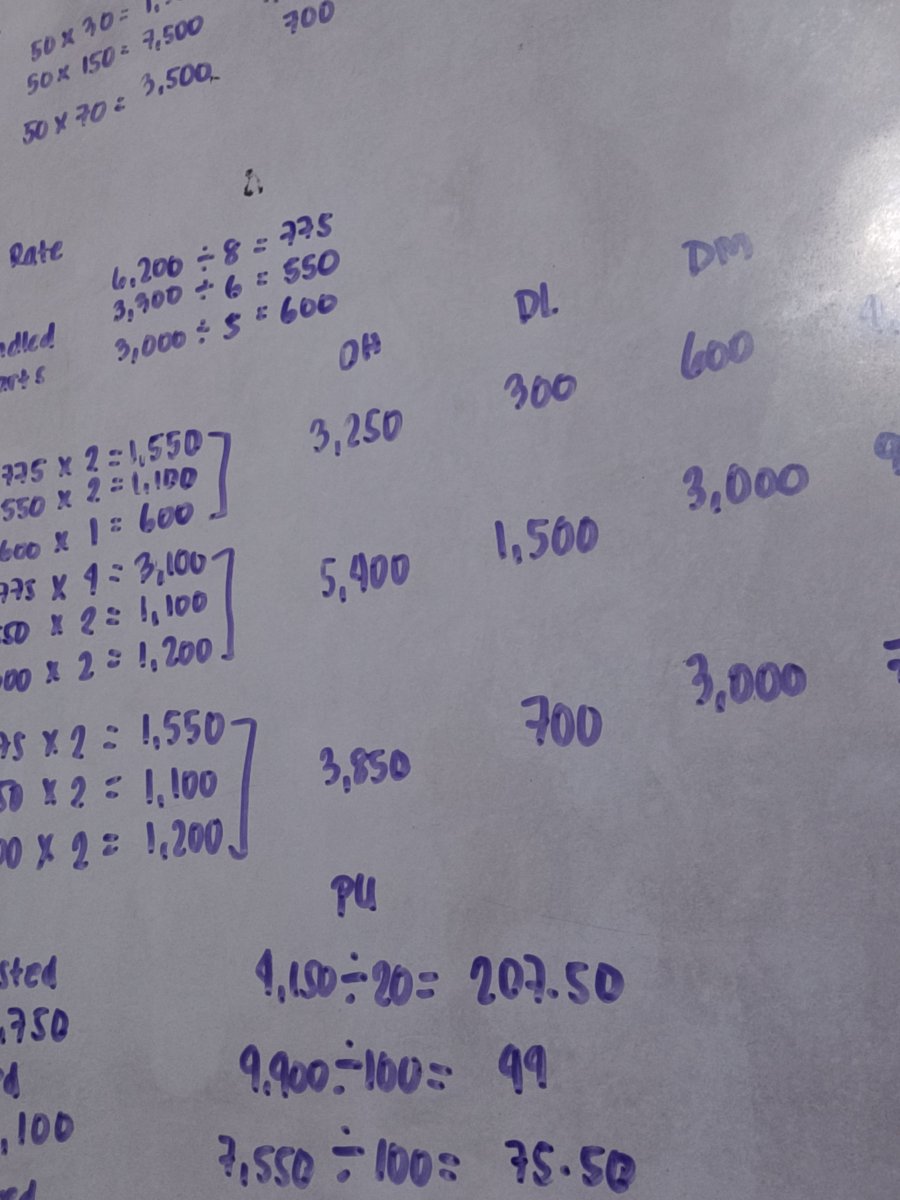 50 × 30 = 1,
50 × 150 = 7,500
700
50 × 70 = 3,500
Rate
6,200 ÷ 8 = 775
3,300 ÷ 6 = 550
3,000 ÷ 5 = 600
OH
DL
DM
775 × 2 = 1,550
550 × 2 = 1,100
600 × 1 = 600
3,250
300
600
775 × 4 = 3,100
50 × 2 = 1,100
00 × 2 = 1,200
5,400
1,500
3,000
75 × 2 = 1,550
50 × 2 = 1,100
00 × 2 = 1,200
3,850
700
3,000
PU
4,150 ÷ 20 = 207.50
,750
9,900 ÷ 100 = 99
,100
7,550 ÷ 100 = 75.50